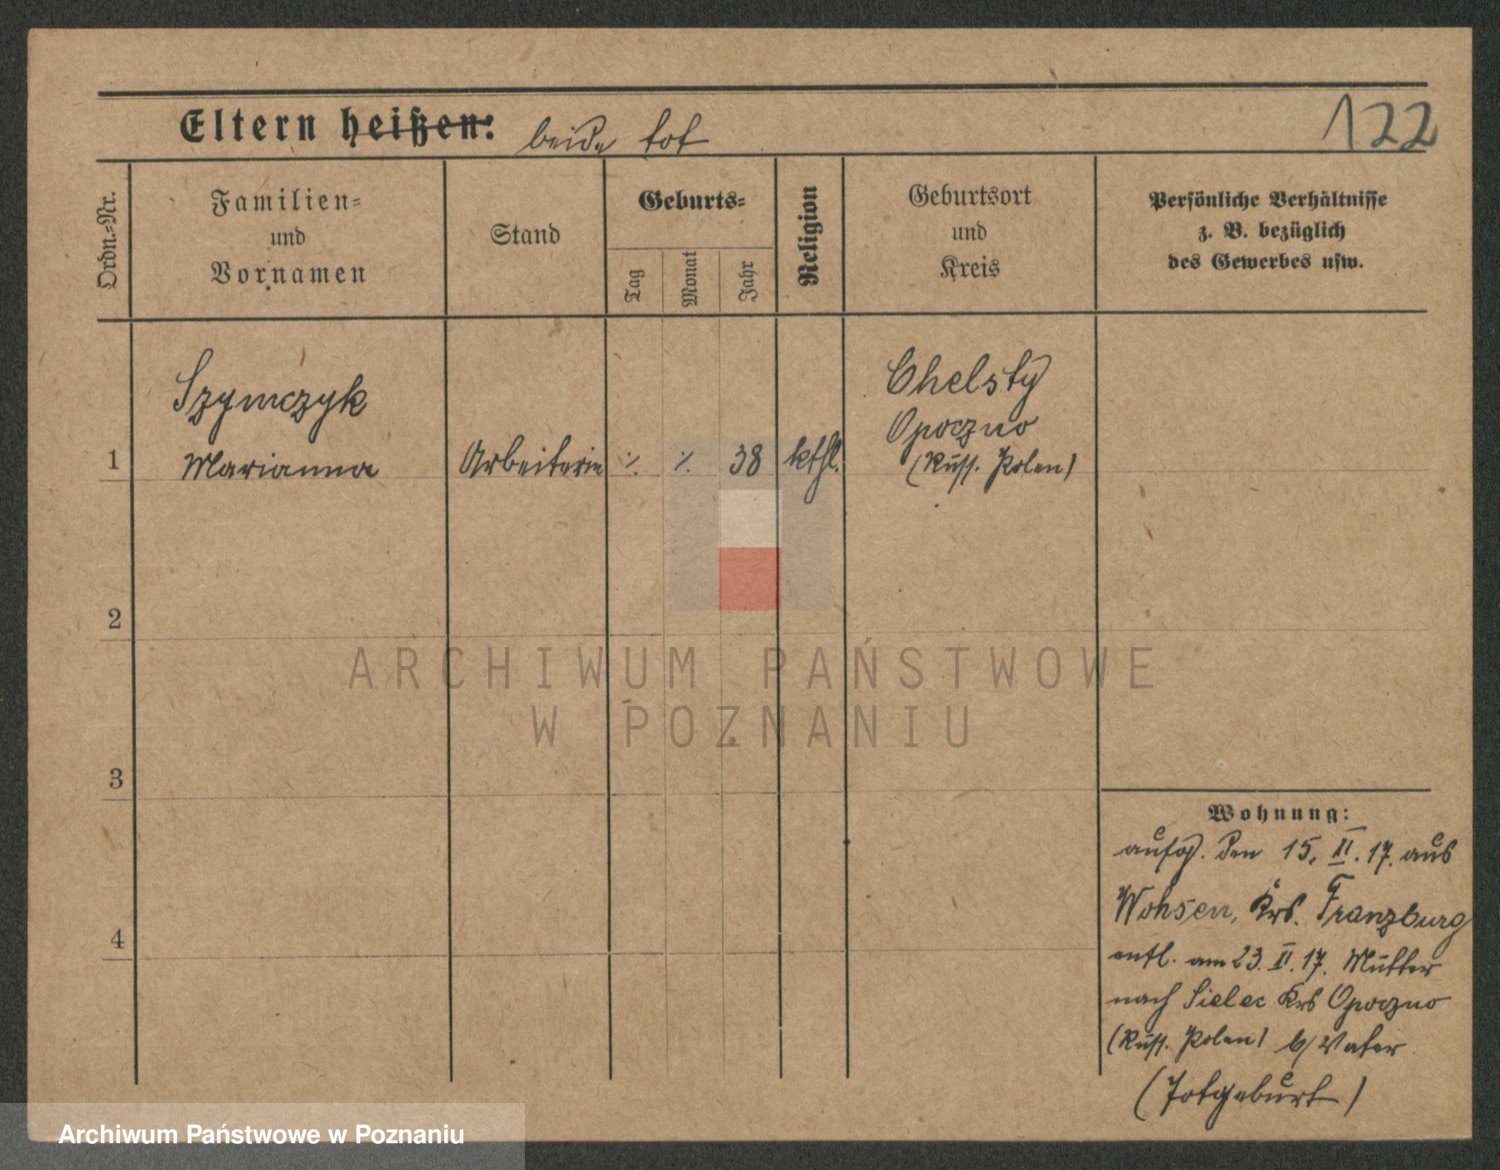 Eltern heißen: beide tot
122
Ordn.-Nr.
Familien-
und
Vornamen
Stand
Geburts-
Tag
Monat
Jahr
Religion
Geburtsort
und
Kreis
Persönliche Verhältnisse
z. B. bezüglich
des Gewerbes usw.
Szymczyk
Marianna
1
Arbeiterin
·/.
·/.
38
kthl.
Chelsty
Opoczno
(Russ. Polen)
2
3
4
Wohnung:
aufg. den 15. II. 17. aus
Wohsen, Krs. Franzburg
entl. am 23. II. 17. Mutter
nach Sielec Krs Opoczno
(Russ. Polen) b/ Vater
(Totgeburt)
ARCHIWUM PAŃSTWOWE
W POZNANIU
Archiwum Państwowe w Poznaniu